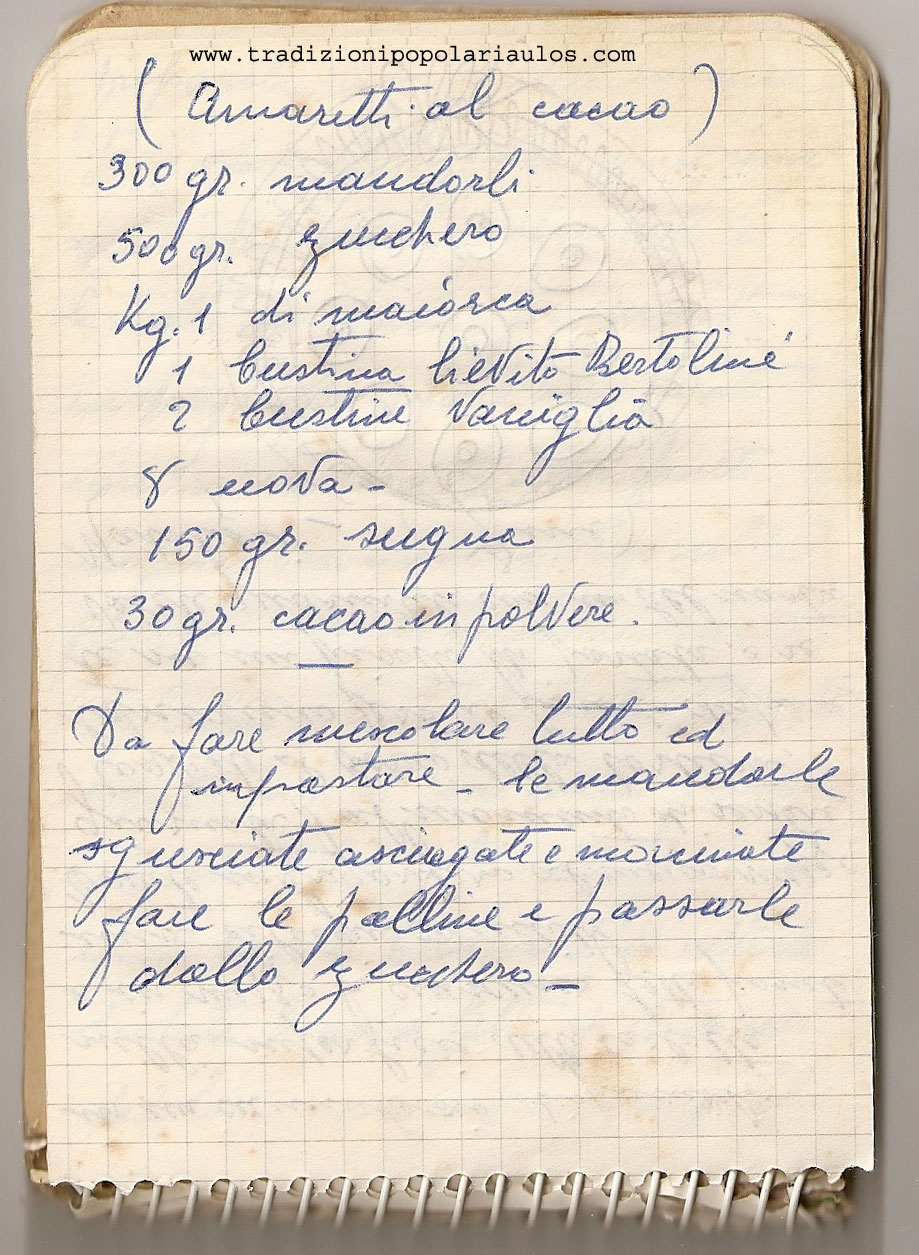 www.tradizionipopolariaulos.com
( Amaretti al cacao )
300 gr. mandorli
500 gr. zucchero
Kg. 1 di maiorca
1 bustina lievito Bertolini
2 bustine Vaniglia
8 uova -
150 gr. sugna
30 gr. cacao in polvere.
Da fare mescolare tutto ed
impastare - le mandorle
sgusciate asciugate e macinate
fare le palline e passarle
dallo zucchero -